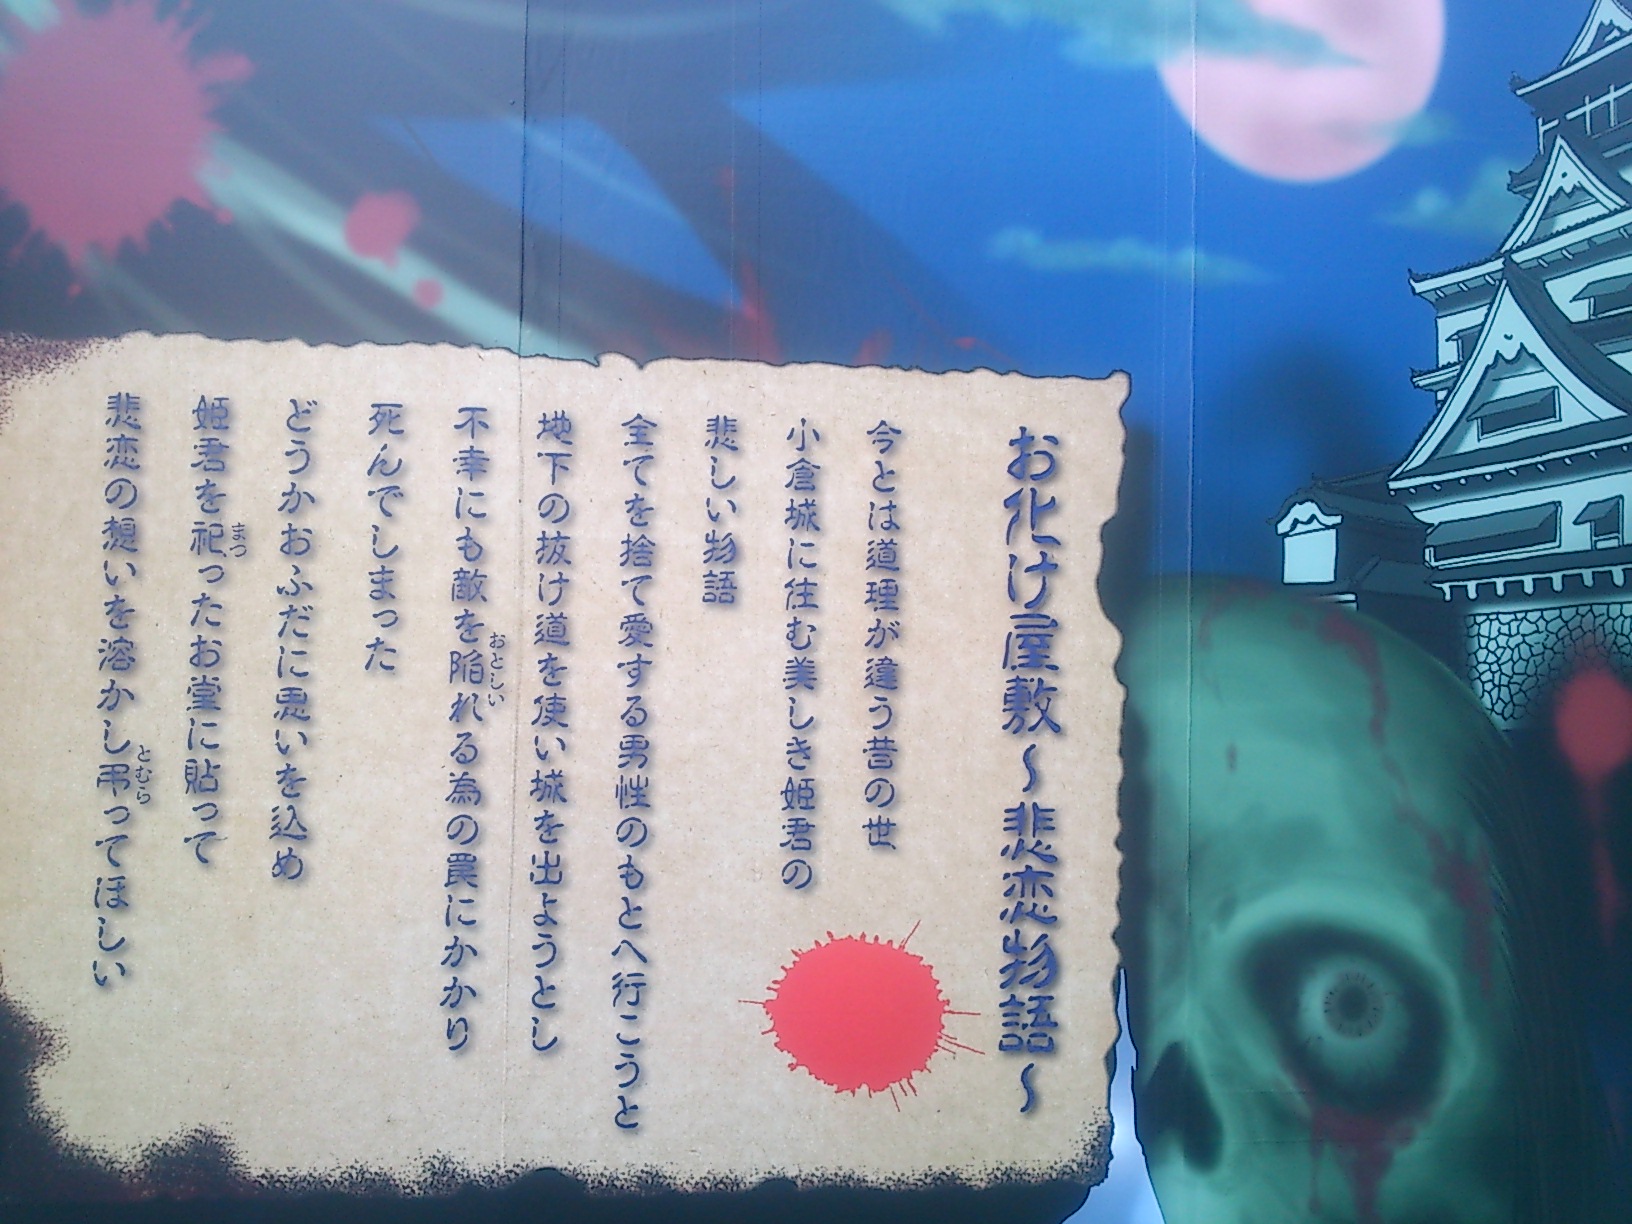 お化け屋敷〜悲恋物語〜
今とは道理が違う昔の世
小倉城に住む美しき姫君の
悲しい物語
全てを捨て愛する男性のもとへ行こうと
地下の抜け道を使い城を出ようとし
不幸にも敵を陥れる為の罠にかかり
おとしい
死んでしまった
どうかおふだに思いを込め
姫君を祀ったお堂に貼って
まつ
悲恋の想いを溶かし弔ってほしい
とむら